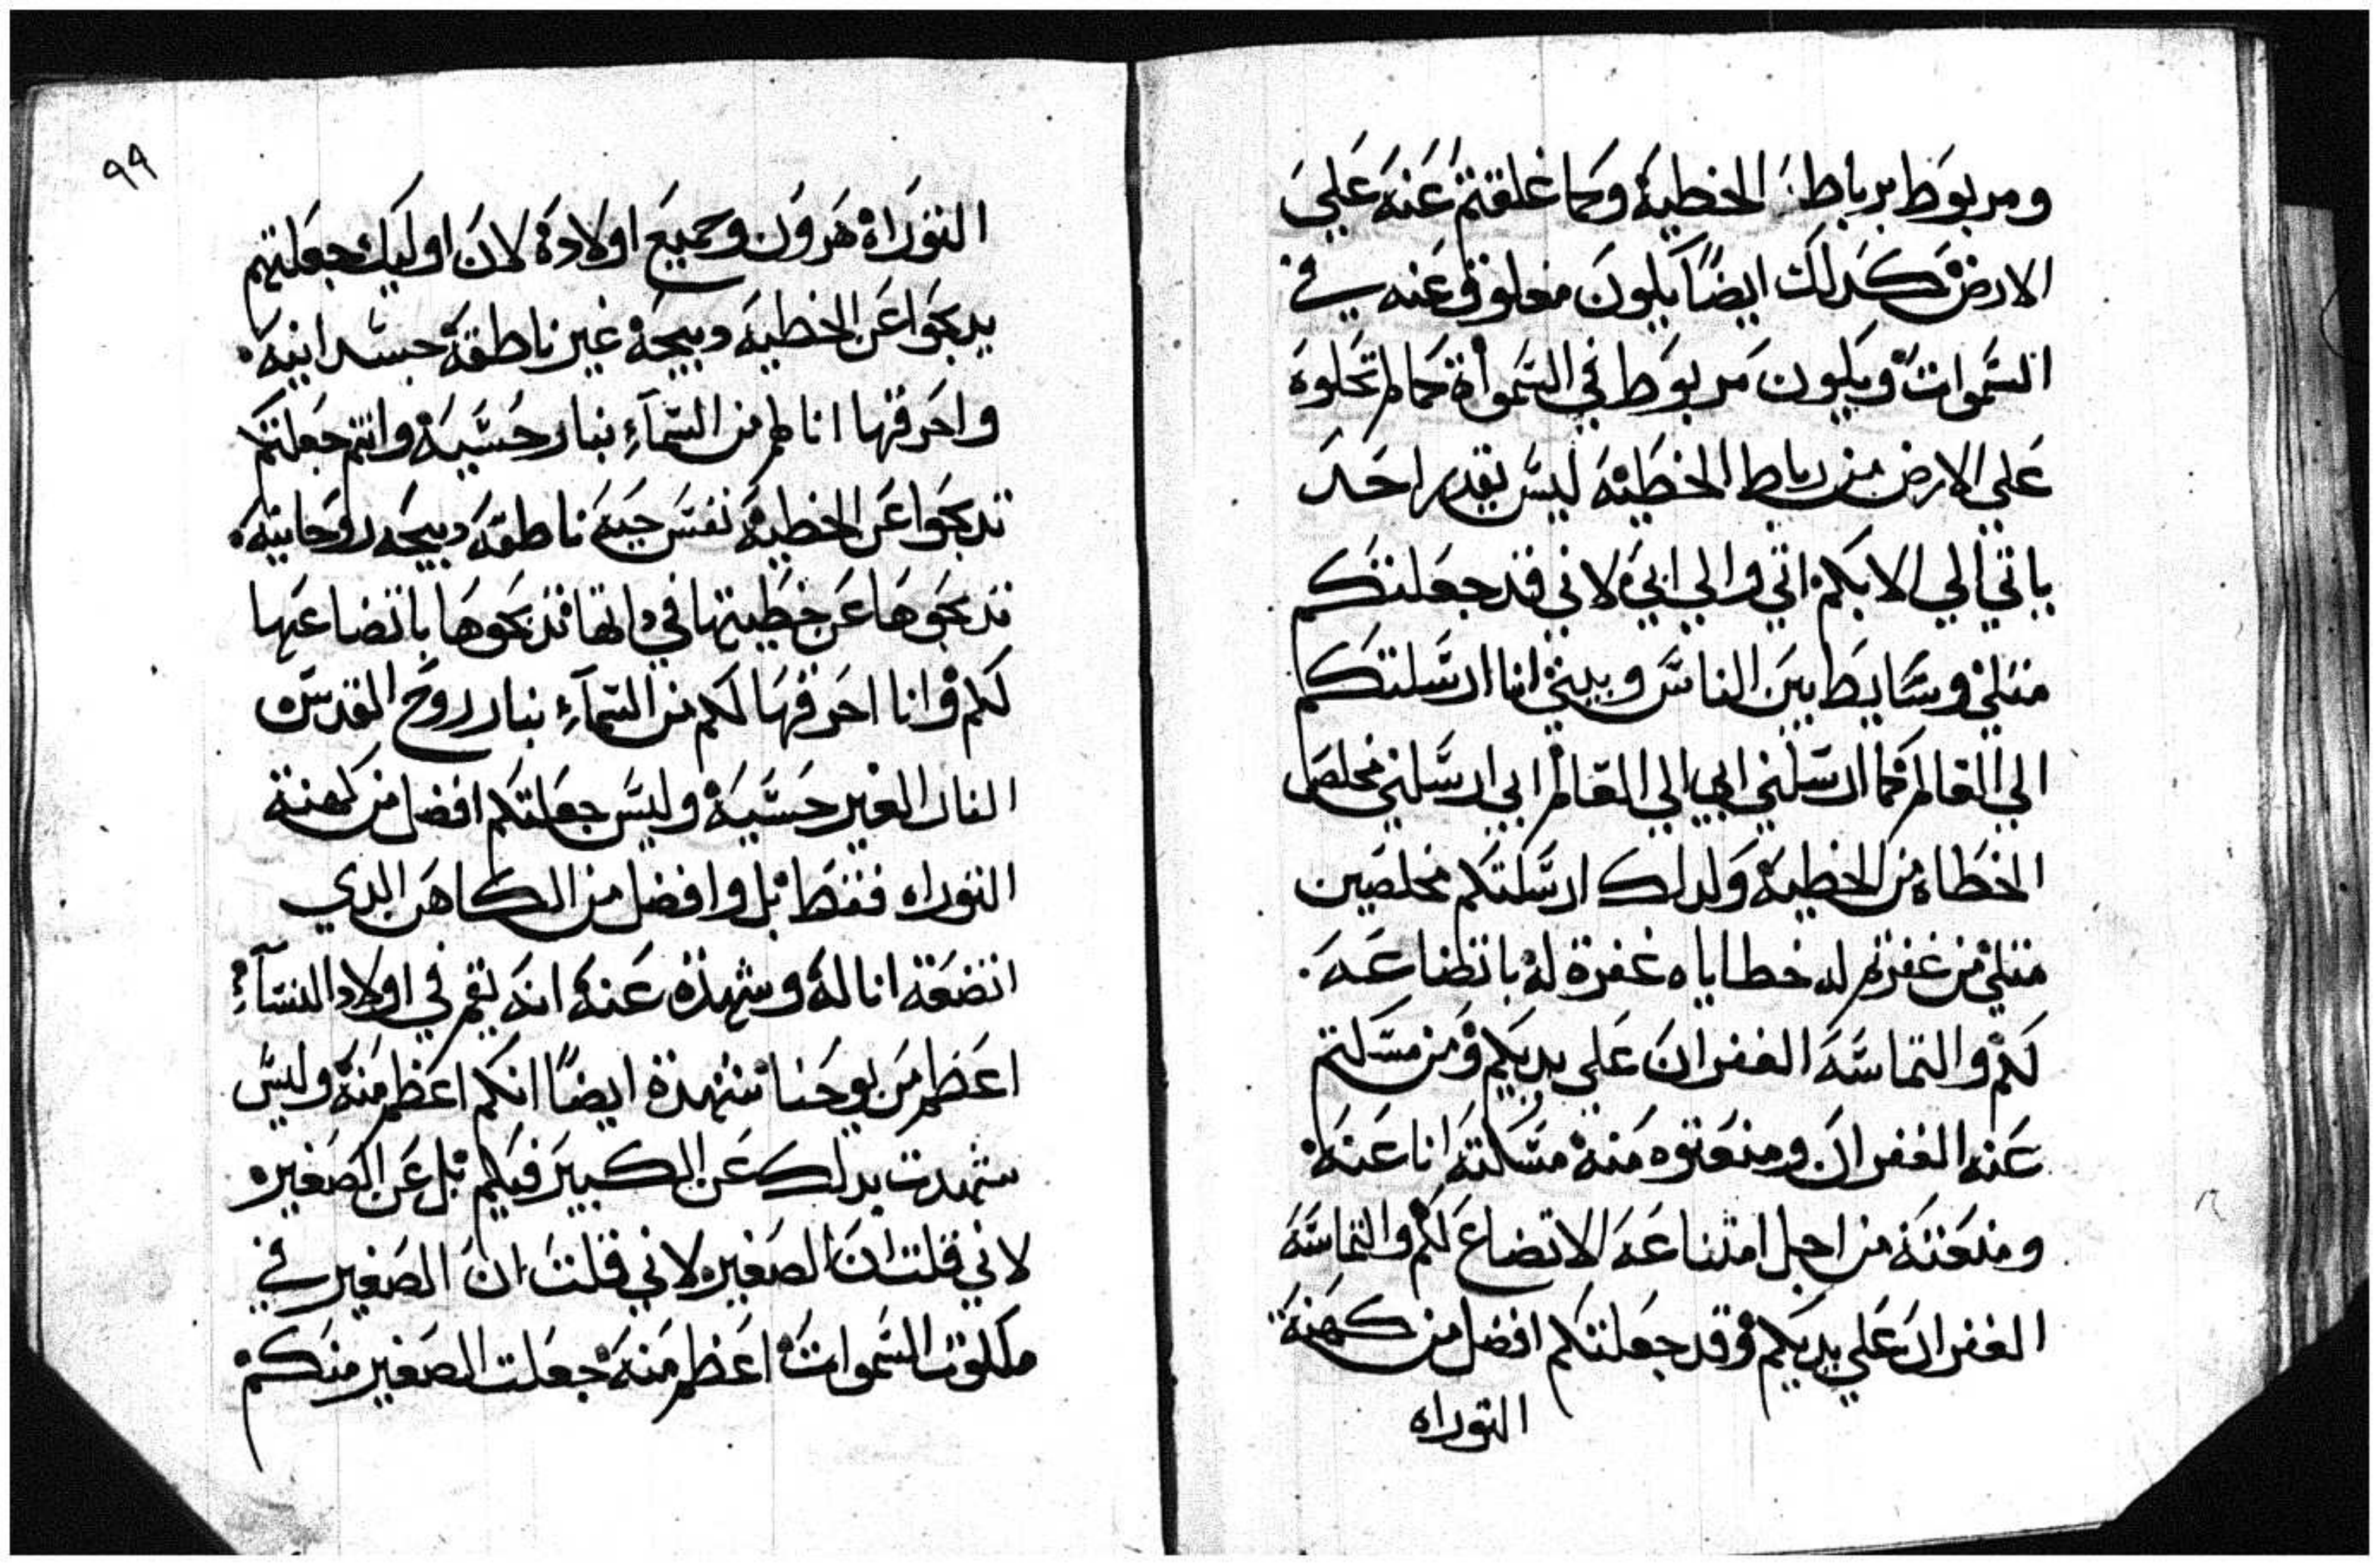 ومربوط برباط الخطية وكما غلقتم عنه علي
الارض كدلك ايضًا يكون مغلوق عنه في
السموات ويكون مربوط في السمواة كما لم تحلوه
علي الارض من رباط الخطية ليس يقدر احد
ياتي الي الا بكم اتي والي ابي لاني قد جعلتكم
متلي وسايط بين الناس وبيني انا ارسلتكم
الي العالم كما ارسلني ابي الي العالم ابي ارسلني مخلص
الخطاه من الخطية ولدلك ارسلتكم مخلصين
متلي من غفرتم له خطاياه غفرة له باتضاعه
لكم والتماسه الغفران علي يديكم ومن مسكتم
عنه الغفران ومنعتوه منه مسكته انا عنه
ومنعته من اجل امتناعه الاتضاع لكم والتماسه
الغفران علي يديكم وقد جعلتكم افضل من كهنة
التوراه
٩٩
التوراة هرون وجميع اولاده لان اوليك جعلتهم
يدبحوا عن الخطية دبيحة غير ناطقة جسدانية
واحرقها انا لهم من السمآء بنار حسية وانتم جعلتكم
تدبحوا عن الخطية نفس حية ناطقة دبيحه روحانية
تدبحوها عن خطيتها في داتها تدبحوها باتضاعها
لكم وانا احرقها لكم من السمآء بنار روح القدس
النار الغير حسية وليس جعلتكم افضل من كهنة
التوراه فقط بل وافضل من الكاهن الدي
اتضعة انا له وشهدة عنه انه لم يقم في اولاد النسآء
اعظم من يوحنا شهدة ايضًا انكم اعظم منه وليس
شهدت بدلك عن الكبير فيكم بل عن الصغير
لاني قلت ان الصغير لاني قلت ان الصغير في
ملكوت السموات اعظم منه جعلت الصغير منكم